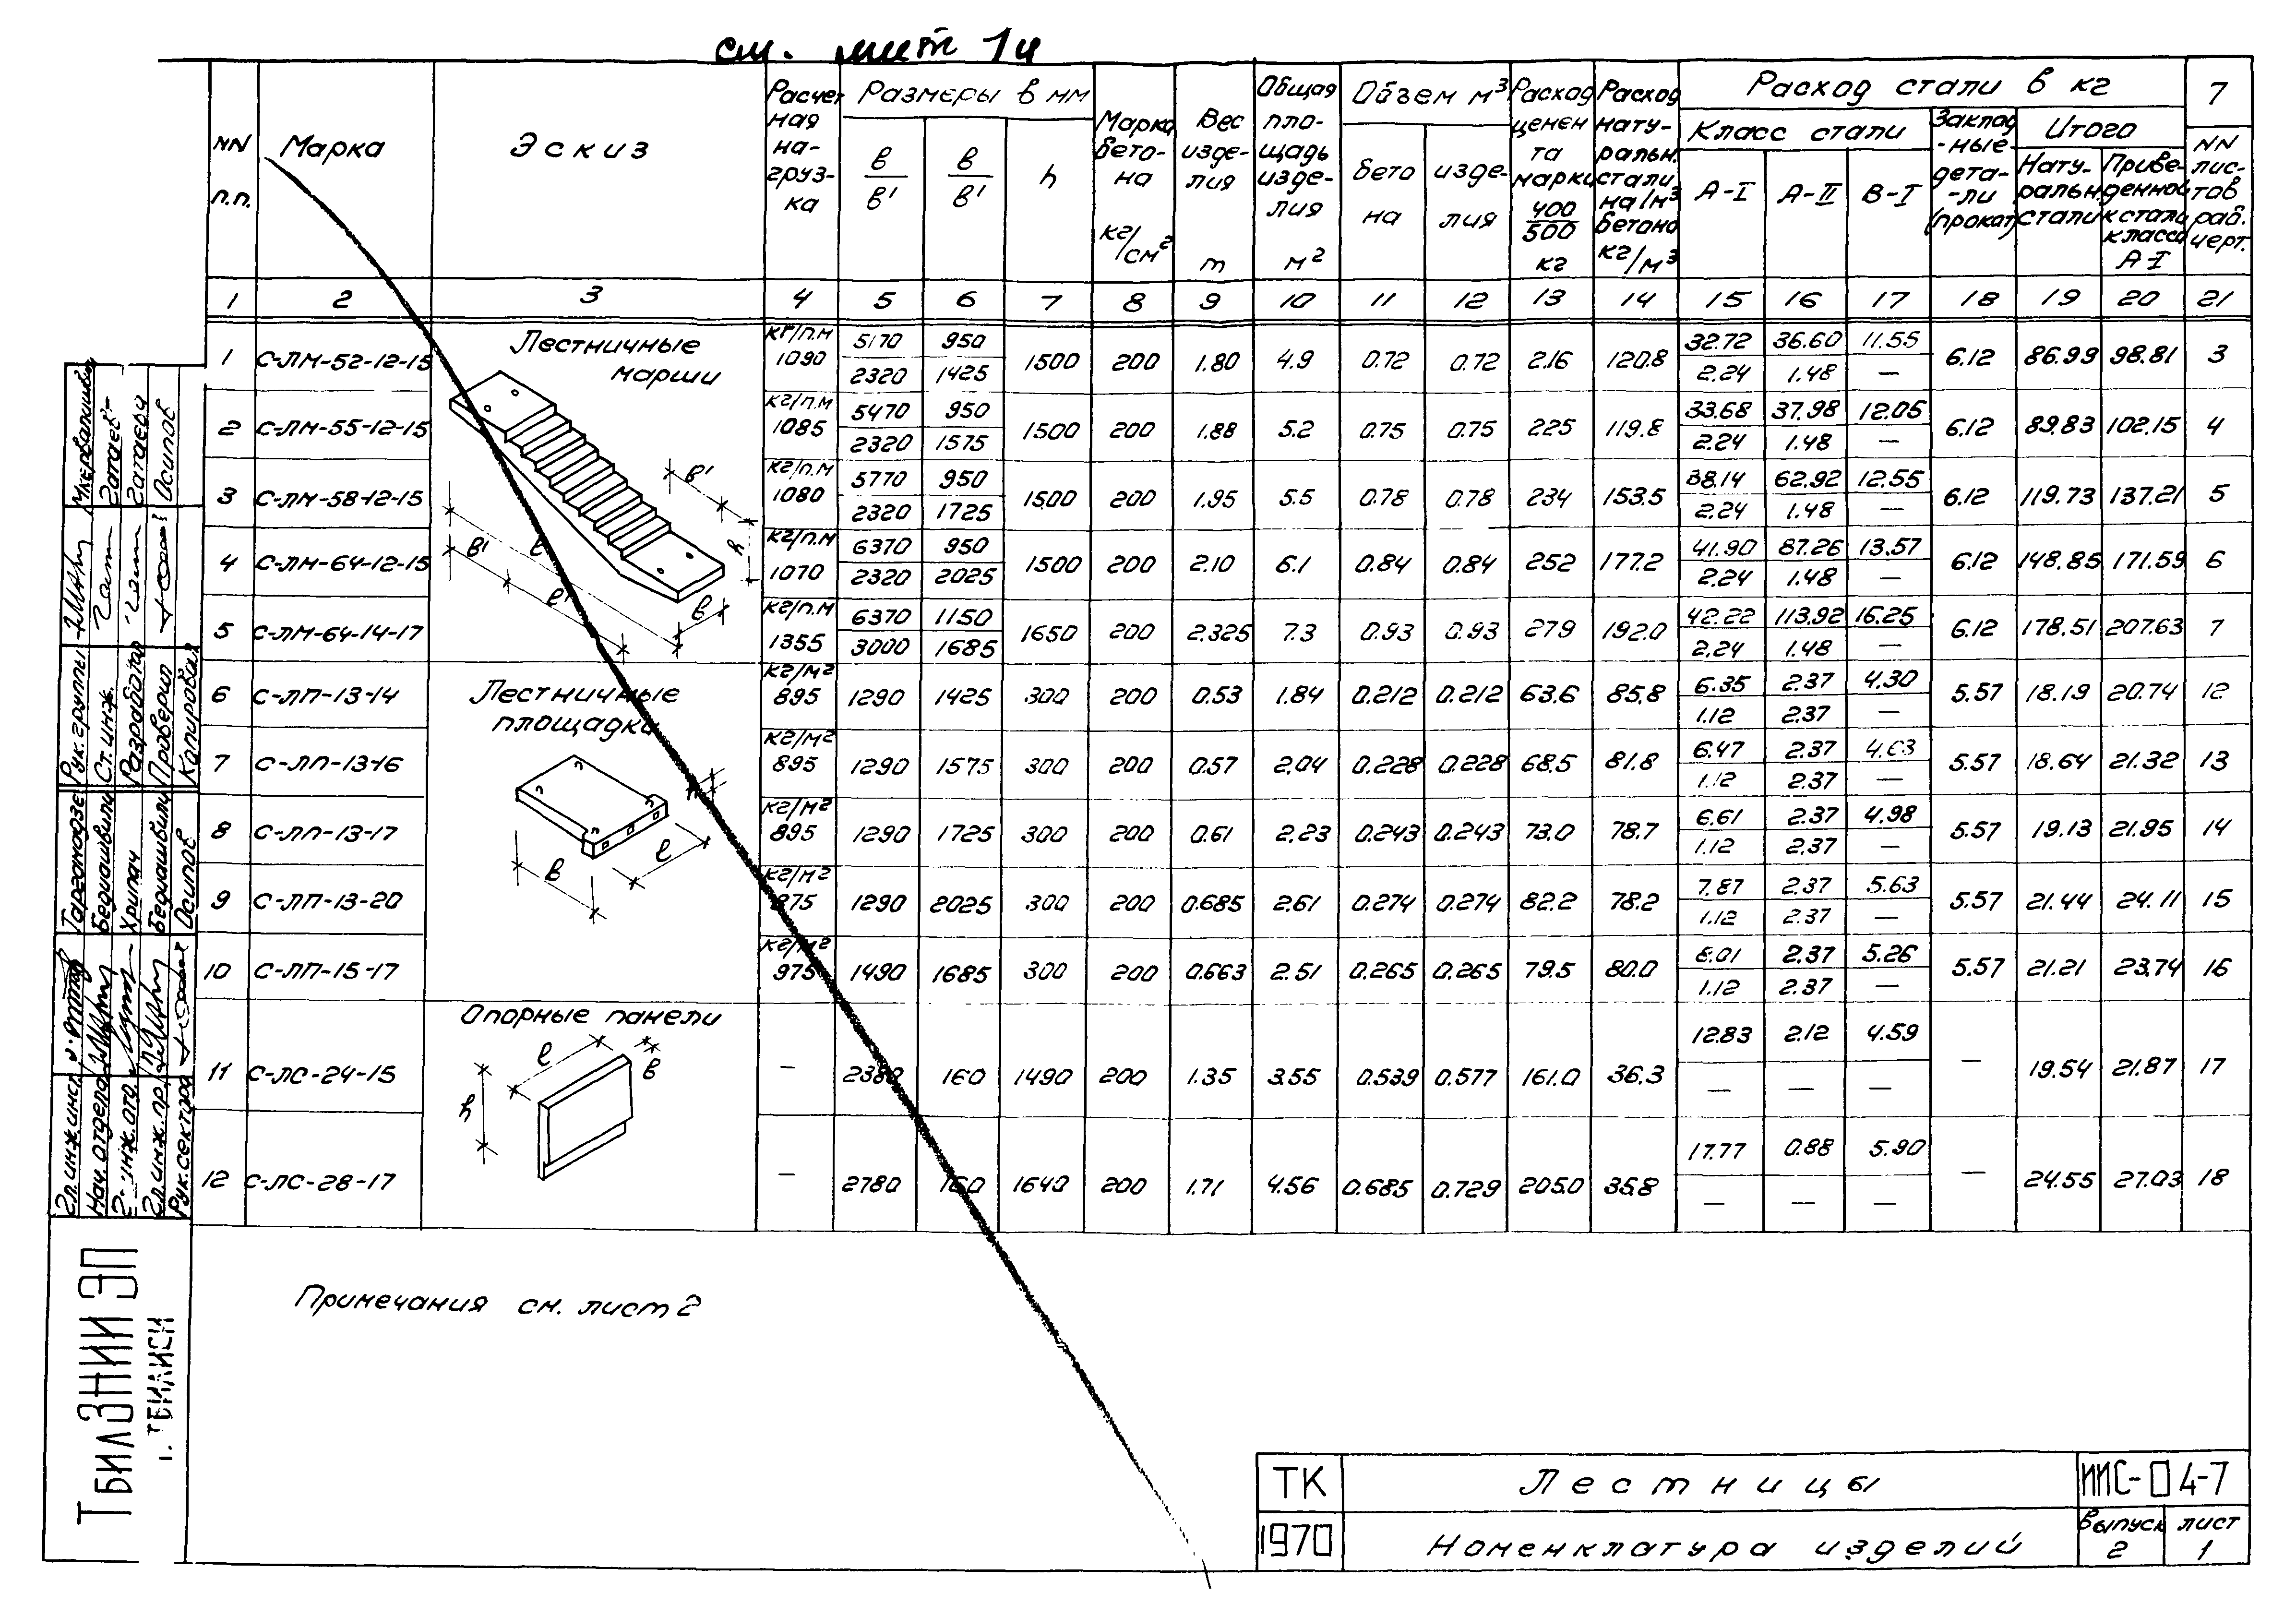 см. лист 1и
NN п.п. Марка Эскиз Расчетная нагрузка Размеры в мм Марка бетона кг/см² Вес изделия т Общая площадь изделия м² Объем м³ Расход цемента марки 400/500 кг Расход натуральн. стали на 1м³ бетона кг/м³ Расход стали в кг 7
в/в' в/в' h бетона изделия Класс стали Закладные детали (прокат) Итого NN листов раб. черт.
А-I А-II В-I Натуральн. стали Приведенной к стали класса А-I
1 2 3 4 5 6 7 8 9 10 11 12 13 14 15 16 17 18 19 20 21
Лестничные марши
1 С-ЛМ-52-12-15 кг/п.м 1090 5170/2320 950/1425 1500 200 1.80 4.9 0.72 0.72 216 120.8 32.72/2.24 36.60/1.48 11.55/— 6.12 86.99 98.81 3
2 С-ЛМ-55-12-15 кг/п.м 1085 5470/2320 950/1575 1500 200 1.88 5.2 0.75 0.75 225 119.8 33.68/2.24 37.98/1.48 12.05/— 6.12 89.83 102.15 4
3 С-ЛМ-58-12-15 кг/п.м 1080 5770/2320 950/1725 1500 200 1.95 5.5 0.78 0.78 234 153.5 38.14/2.24 62.92/1.48 12.55/— 6.12 119.73 137.21 5
4 С-ЛМ-64-12-15 кг/п.м 1070 6370/2320 950/2025 1500 200 2.10 6.1 0.84 0.84 252 177.2 41.90/2.24 87.26/1.48 13.57/— 6.12 148.85 171.59 6
5 С-ЛМ-64-14-17 кг/п.м 1355 6370/3000 1150/1685 1650 200 2.325 7.3 0.93 0.93 279 192.0 42.22/2.24 113.92/1.48 16.25/— 6.12 178.51 207.63 7
в' в' ℓ ℓ' в h
Лестничные площадки
6 С-ЛП-13-14 кг/м² 895 1290 1425 300 200 0.53 1.84 0.212 0.212 63.6 85.8 6.35/1.12 2.37/2.37 4.30/— 5.57 18.19 20.74 12
7 С-ЛП-13-16 кг/м² 895 1290 1575 300 200 0.57 2.04 0.228 0.228 68.5 81.8 6.47/1.12 2.37/2.37 4.63/— 5.57 18.64 21.32 13
8 С-ЛП-13-17 кг/м² 895 1290 1725 300 200 0.61 2.23 0.243 0.243 73.0 78.7 6.61/1.12 2.37/2.37 4.98/— 5.57 19.13 21.95 14
9 С-ЛП-13-20 кг/м² 1290 2025 300 200 0.685 2.61 0.274 0.274 82.2 78.2 7.87/1.12 2.37/2.37 5.63/— 5.57 21.44 24.11 15
10 С-ЛП-15-17 кг/м² 975 1490 1685 300 200 0.663 2.51 0.265 0.265 79.5 80.0 8.01/1.12 2.37/2.37 5.26/— 5.57 21.21 23.74 16
в ℓ
Опорные панели
11 С-ЛС-24-15 — 2380 160 1490 200 1.35 3.55 0.539 0.577 161.0 36.3 12.83/— 2.12/— 4.59/— — 19.54 21.87 17
12 С-ЛС-28-17 — 2780 160 1640 200 1.71 4.56 0.685 0.729 205.0 35.8 17.77/— 0.88/— 5.90/— — 24.55 27.03 18
ℓ в h
Примечания см. лист 2
Рук. группы
Ст. инж. Гатаев
Разработал Гатаева
Проверил Осипов
Копировал
Гл. инж. инст.
Нач. отдела Бериашвили
Гл. инж. отд. Хрипач
Гл. инж. пр. Бериашвили
Рук. сектора Осипов
ТбилЗНИИЭП
г. ТБИЛИСИ
ТК Лестницы ИИС-04-7
1970 Номенклатура изделий Выпуск 2 лист 1